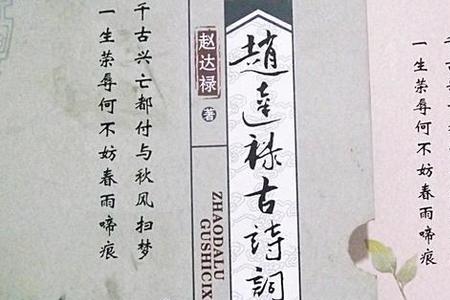 千古兴亡都付与秋风扫梦
一生荣辱何不妨春雨啼痕
赵达禄
著
ZHAODALU
GUSHICIX
趙達祿古詩詞
一生荣辱何不妨春雨啼痕